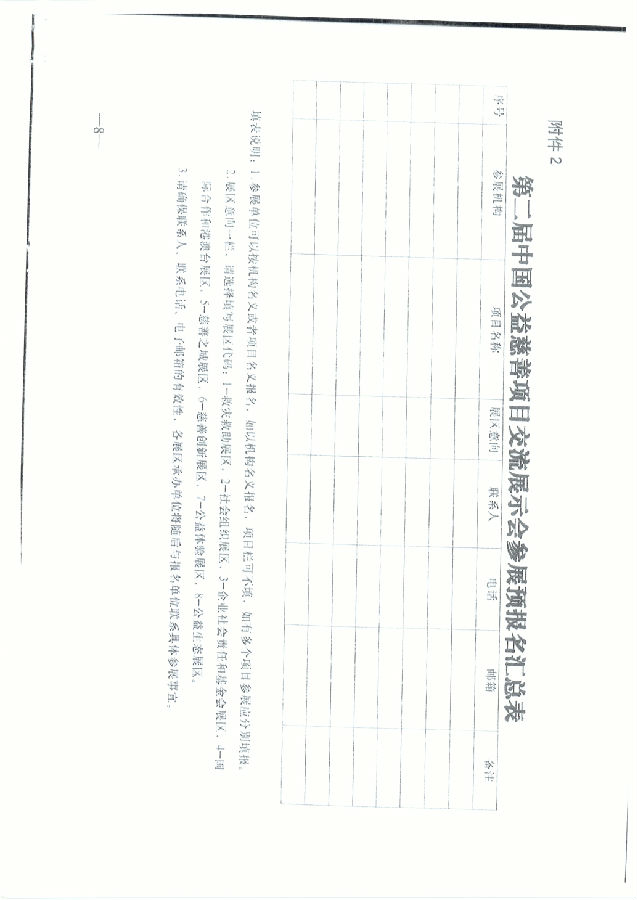 附件 2
第二届中国公益慈善项目交流展示会参展预报名汇总表
序号 参展机构 项目名称 展区意向 联系人 电话 邮箱 备注
填表说明：1.参展单位可以按机构名义或者项目名义报名，如以机构名义报名，项目栏可不填，如有多个项目参展应分别填报。
2.展区意向一栏，请选择填写展区代码：1—救灾救助展区，2—社会组织展区，3—企业社会责任和基金会展区，4—国
际合作和港澳台展区，5—慈善之城展区，6—慈善创新展区，7—公益体验展区，8—公益生态展区。
3.请确保联系人、联系电话、电子邮箱的有效性，各展区承办单位将随后与报名单位联系具体参展事宜。
—8—